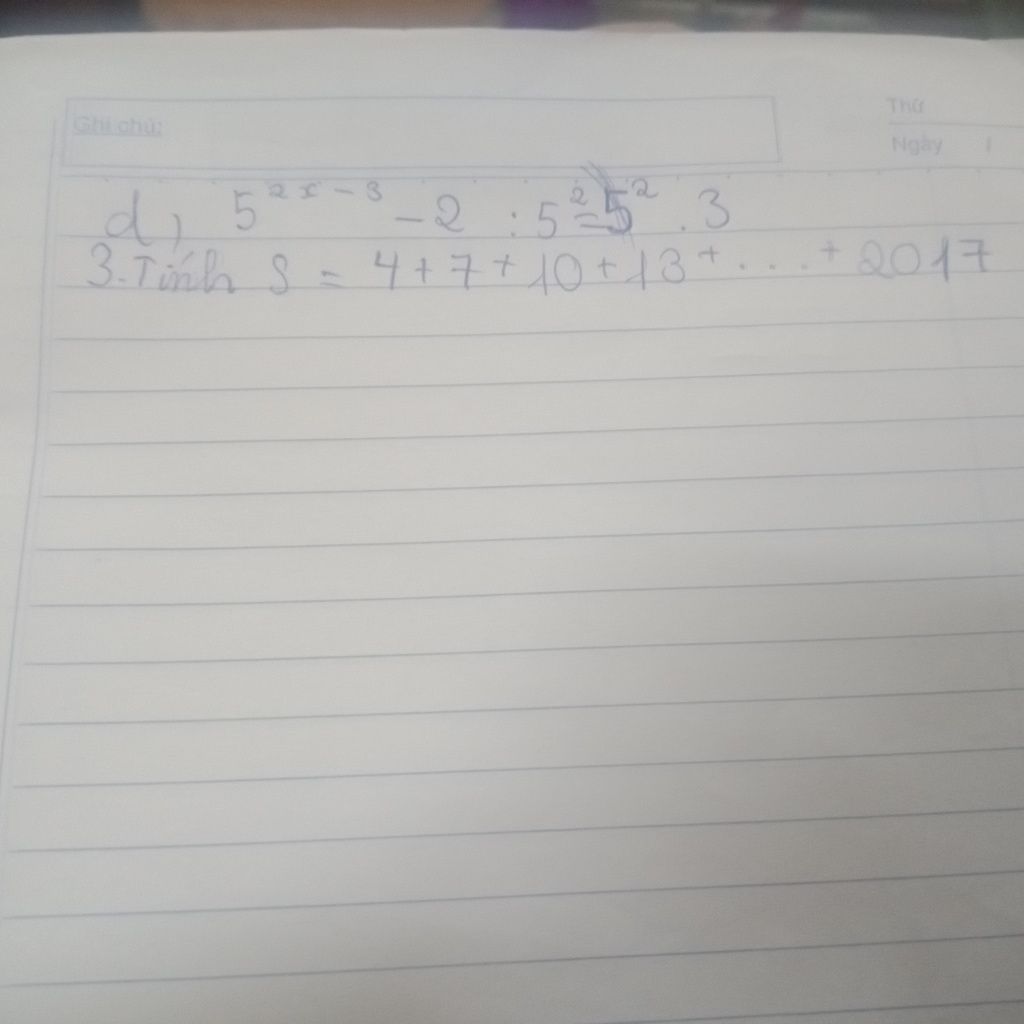 Ghi chú:
Thứ
Ngày /
d, 5^{2x-3} - 2 : 5^2 = 5^2 . 3
3. Tính S = 4 + 7 + 10 + 13 + ... + 2017